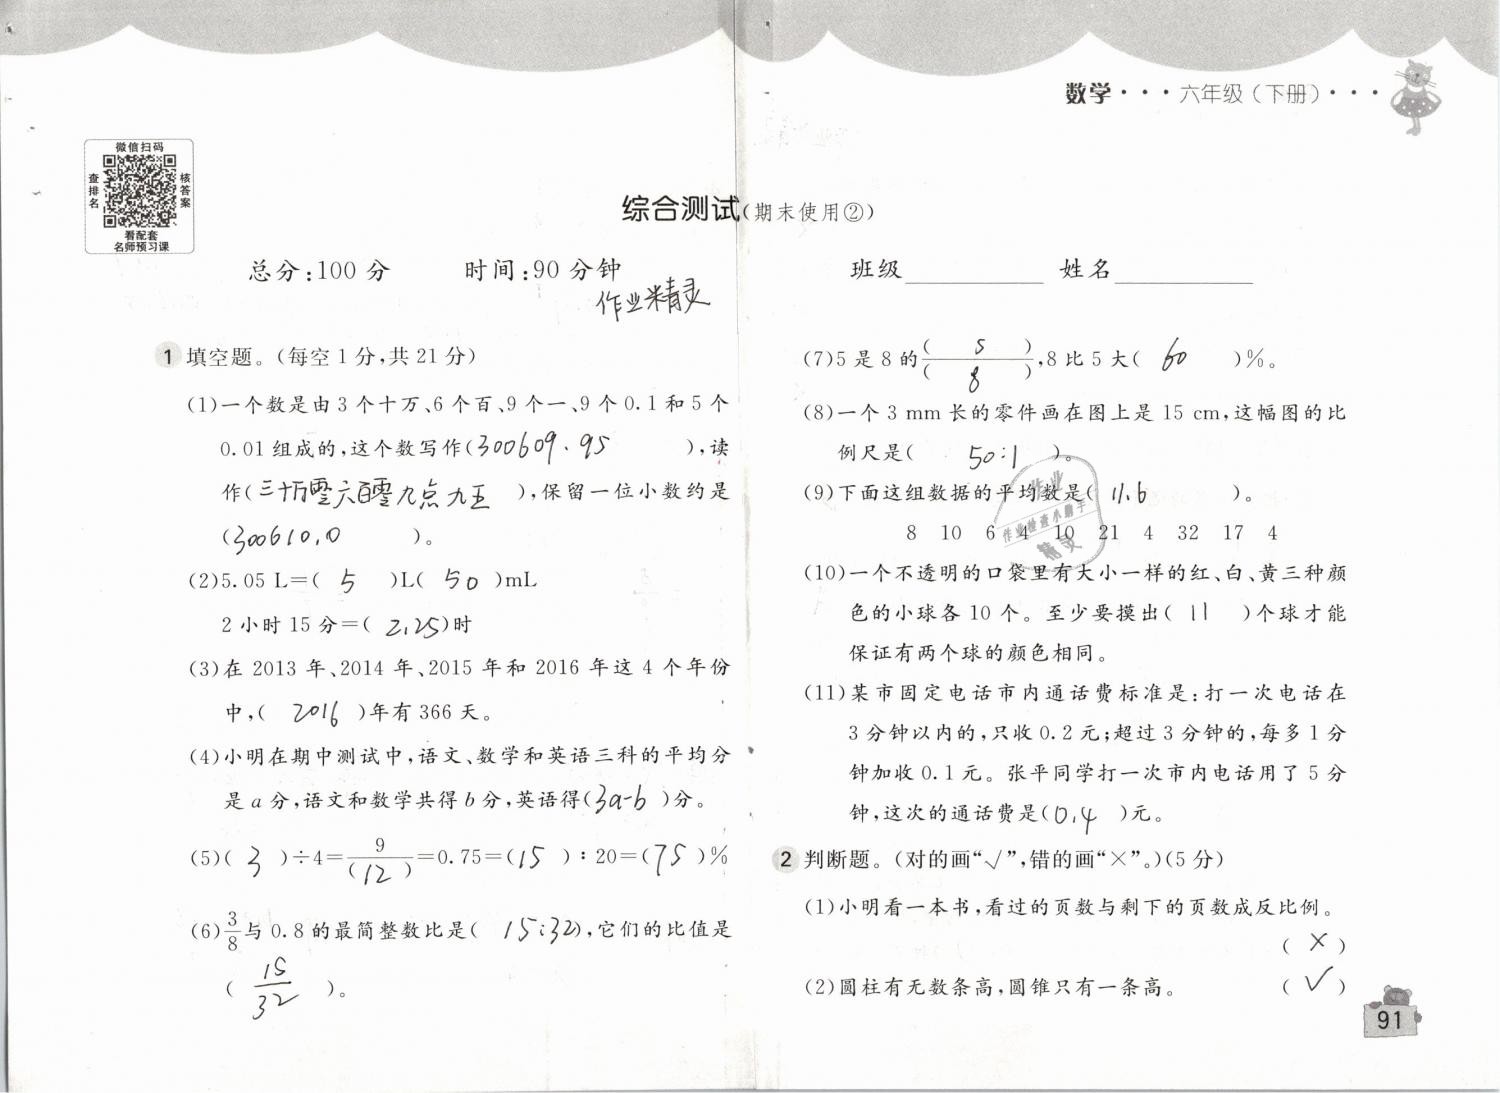 数学···六年级(下册)···
微信扫码
查排名
核答案
看配套
名师预习课
综合测试(期末使用②)
总分:100分 时间:90分钟 班级 姓名
作业精灵
1 填空题。(每空1分,共21分)
(1)一个数是由3个十万、6个百、9个一、9个0.1和5个
0.01组成的,这个数写作(300609.95),读
作(三十万零六百零九点九五),保留一位小数约是
(300610.0)。
(2)5.05 L=( 5 )L( 50 )mL
2小时15分=( 2.25)时
(3)在2013年、2014年、2015年和2016年这4个年份
中,( 2016 )年有366天。
(4)小明在期中测试中,语文、数学和英语三科的平均分
是a分,语文和数学共得b分,英语得(3a-b)分。
(5)( 3 )÷4=9/(12)=0.75=(15):20=(75)%
(6)3/8与0.8的最简整数比是( 15:32),它们的比值是
( 15/32 )。
(7)5是8的( 5 )/( 8 ),8比5大( 60 )%。
(8)一个3 mm长的零件画在图上是15 cm,这幅图的比
例尺是( 50:1 )。
(9)下面这组数据的平均数是( 11.6 )。
8 10 6 4 10 21 4 32 17 4
作业
作业检查小助手
精灵
(10)一个不透明的口袋里有大小一样的红、白、黄三种颜
色的小球各10个。至少要摸出( 11 )个球才能
保证有两个球的颜色相同。
(11)某市固定电话市内通话费标准是:打一次电话在
3分钟以内的,只收0.2元;超过3分钟的,每多1分
钟加收0.1元。张平同学打一次市内电话用了5分
钟,这次的通话费是(0.4)元。
2 判断题。(对的画“√”,错的画“×”。)(5分)
(1)小明看一本书,看过的页数与剩下的页数成反比例。
( × )
(2)圆柱有无数条高,圆锥只有一条高。 ( √ )
91